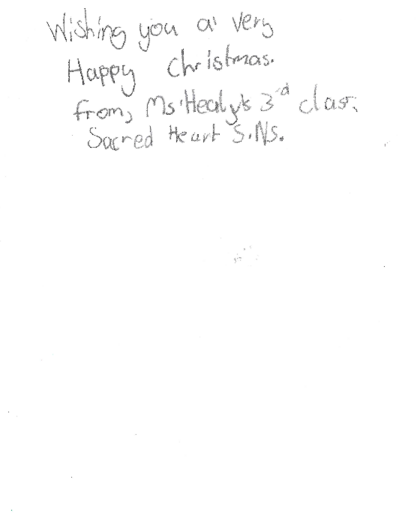 Wishing you a very
Happy Christmas.
from, Ms Healy's 3rd class.
Sacred Heart S.NS.